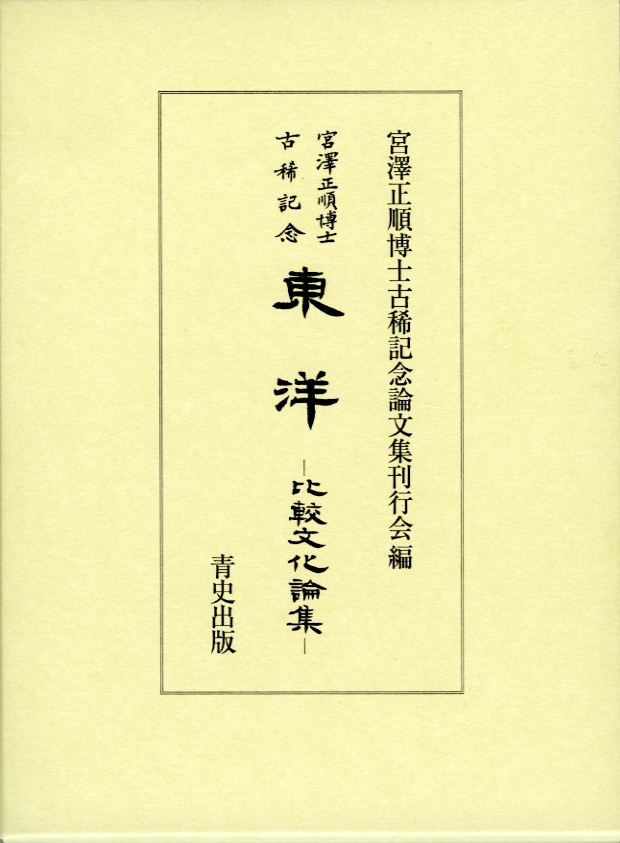 宮澤正順博士古稀記念論文集刊行会編
宮澤正順博士
古稀記念
東洋
―比較文化論集―
青史出版